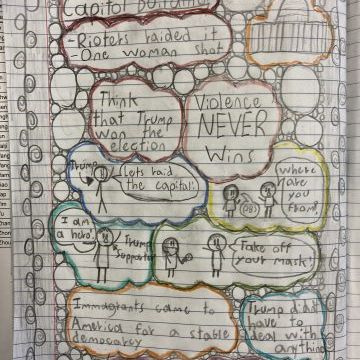 Capitol Building
-Rioters raided it
One woman shot
Think
that Trump
won the
election
Violence
NEVER
Wins
Trump
Lets raid
the capital!
Where
are
you
from?
I am
a hero!
Trump
Supporter
Take off
your mask!
Immagrants came to
America for a stable
democarcy
Trump didnt
have to
deal with
anything